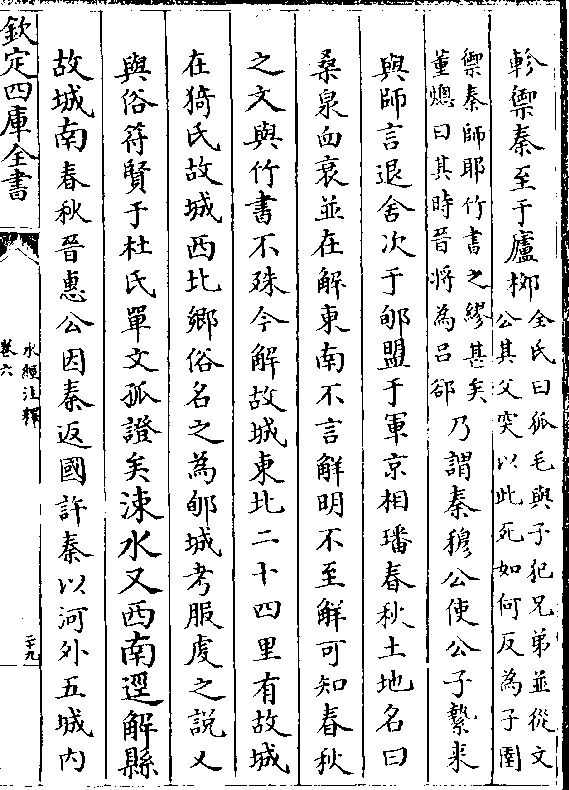 軫禦秦至于廬栁
全氏曰狐毛與子犯兄弟並從文
公其父突以此死如何反為子圉
禦秦師耶竹書之繆甚矣
董熜曰其時晉將為吕郤
乃謂秦穆公使公子縶来
與師言退舍次于郇盟于軍京相璠春秋土地名曰
桑泉臼衰並在解東南不言解明不至解可知春秋
之文與竹書不殊今解故城東北二十四里有故城
在猗氏故城西北鄉俗名之為郇城考服䖍之說又
與俗符賢于杜氏單文孤證矣涑水又西南逕解縣
故城南春秋晉惠公因秦返國許秦以河外五城内
欽定四庫全書
水經注釋
卷六
二十九